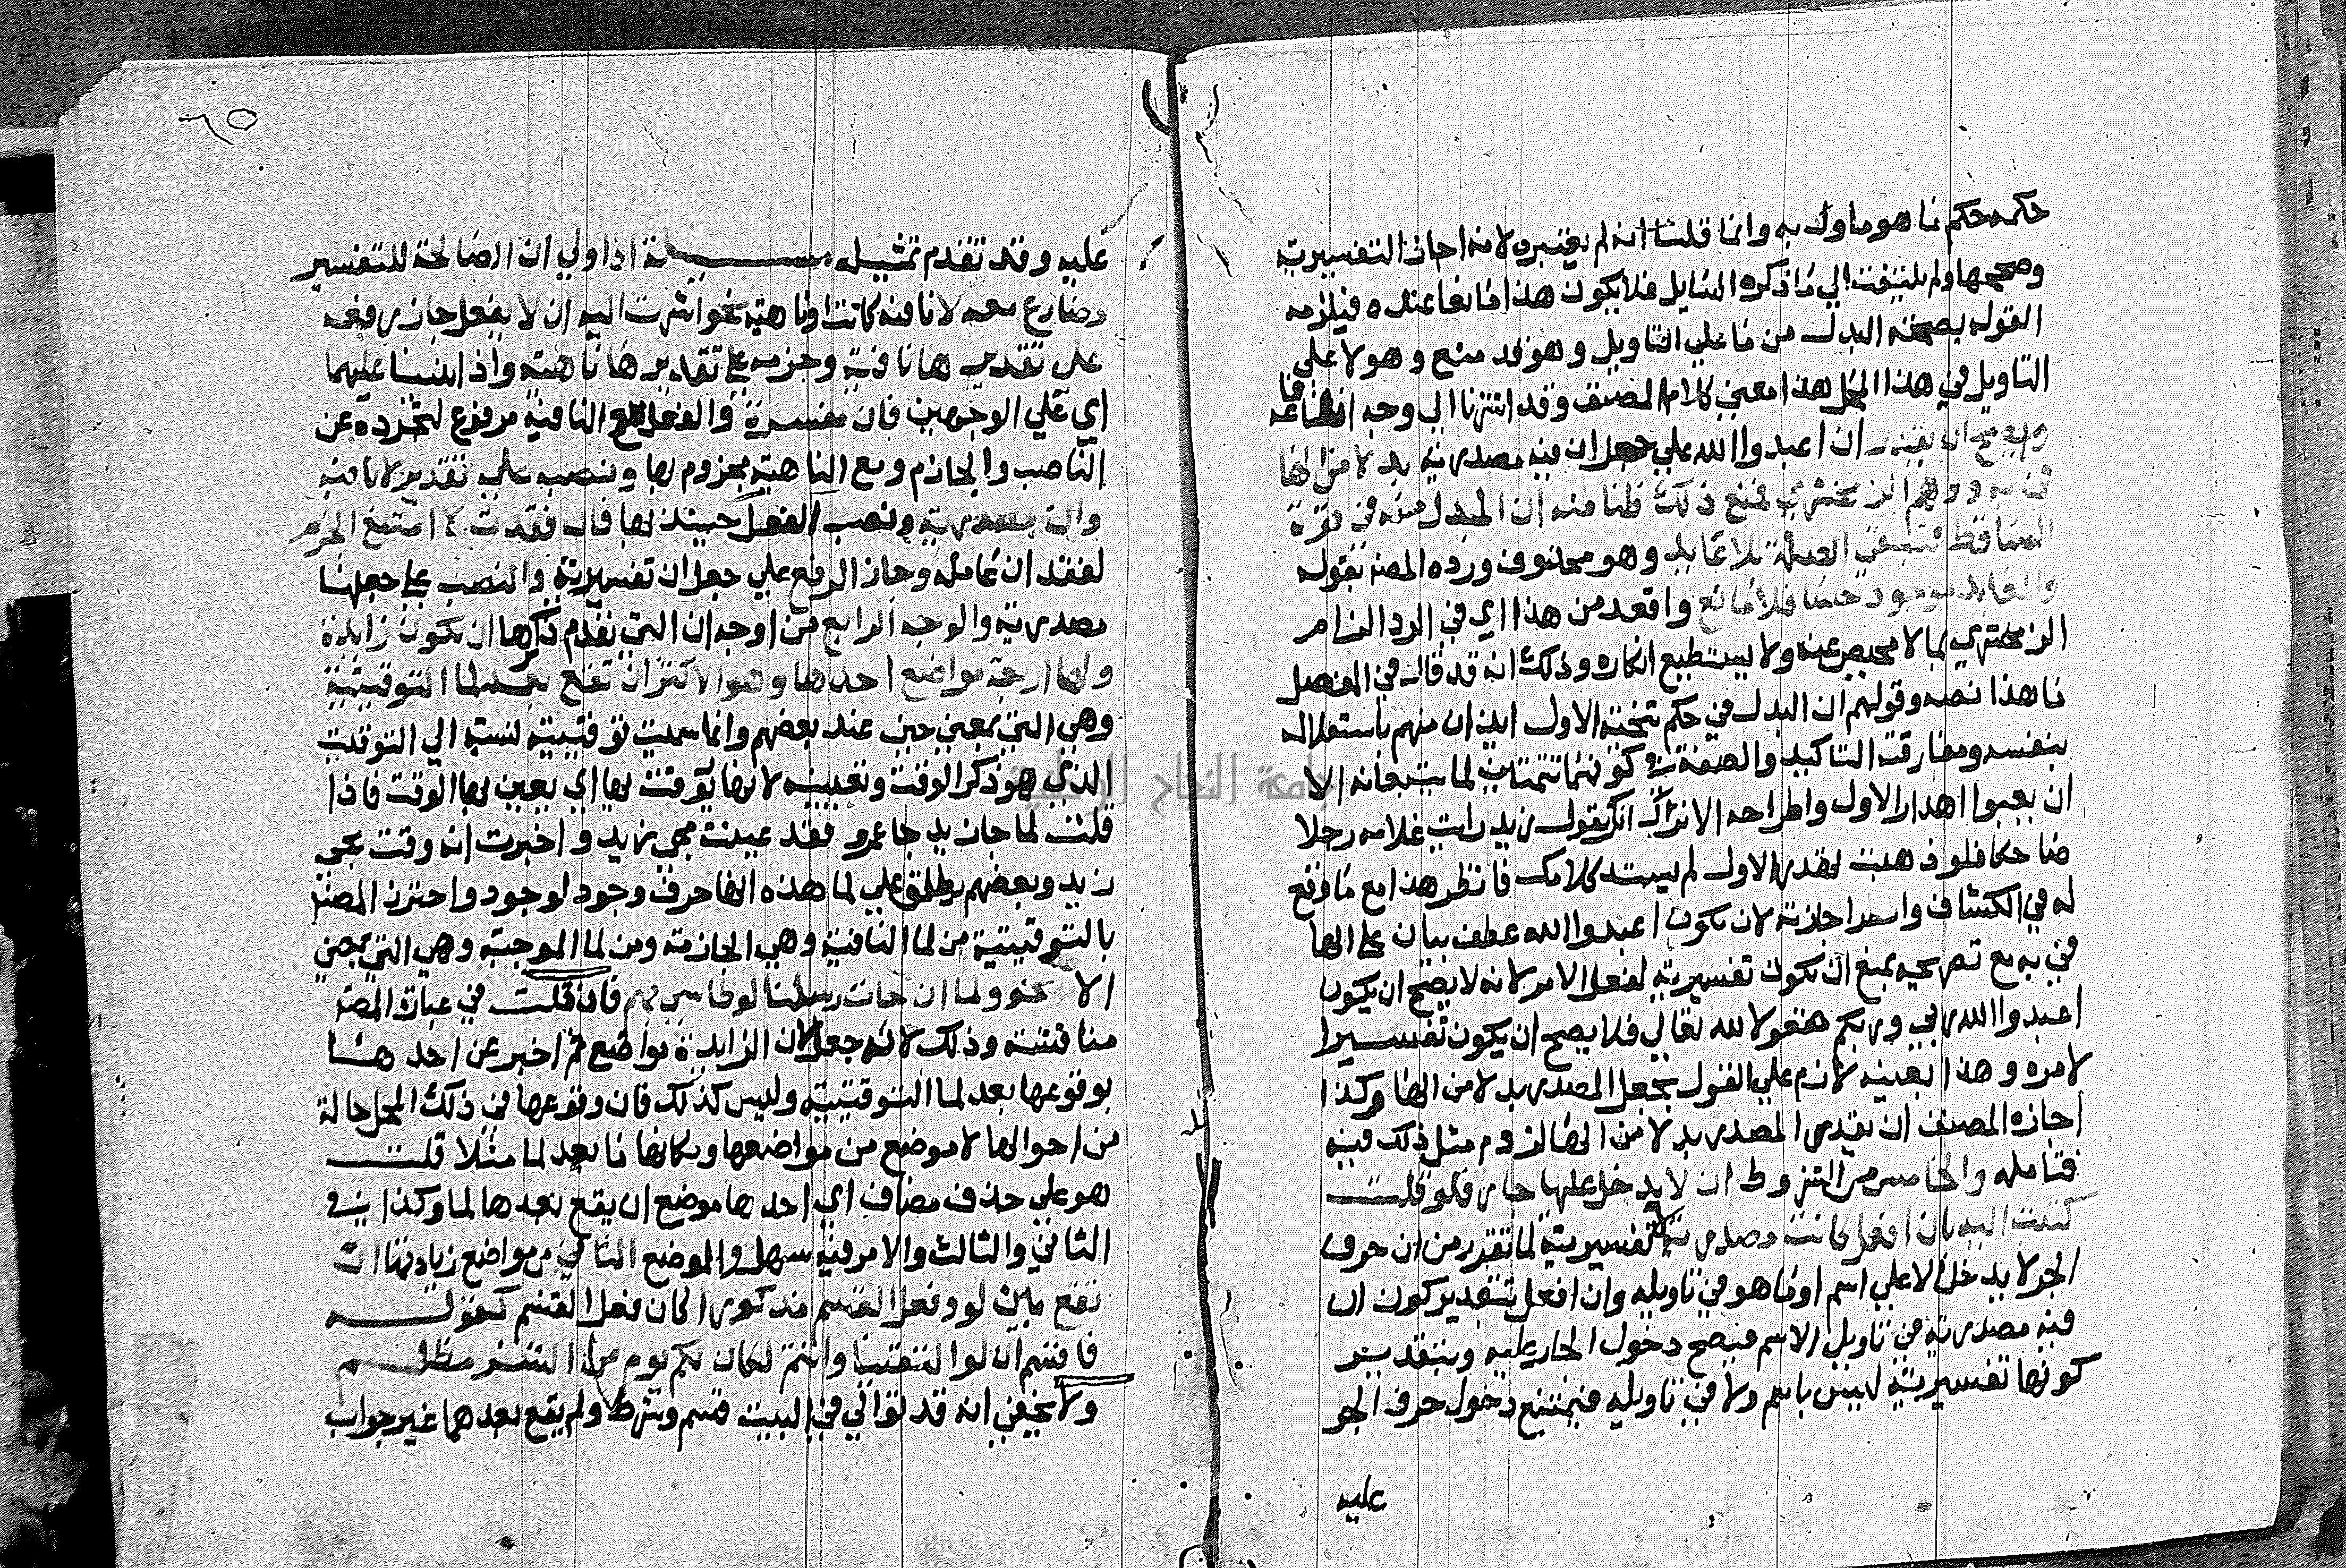 حكمه حكم ما هو ماول به وانما قلنا انه لم يعتبره لانه اجاز التفسيرية
وصححها ولم يلتفت الي ما ذكره السايل فلا يكون هذا مانعا عنده فيلزمه
القول بصحة البدل من ما علي التاويل وهو قد منع وهو لا علي
التاويل في هذا المحل هذا معني كلام المصنف وقد اشرنا الي وجه
ان اعبدوا الله علي جعل ان فيه مصدرية بدلا من الها
في به ووهم الزمخشري فمنع ذلك ظنا منه ان المبدل منه في قوة
الساقط فتبقي الصلة بلا عايد وهو محذوف ورده المصنف بقوله
والعايد موجود حسا فلا مانع واقعد من هذا اي في الرد الزام
الزمخشري بما لا محيص عنه ولا يستطيع انكاره وذلك انه قد قال في المفصل
ما هذا نصه وقولهم ان البدل في حكم تنحية الاول ايذان منهم باستقلاله
بنفسه ومفارقته التاكيد والصفة في كونهما تتمتين لما يتبعانه الا
ان يعنوا اهدار الاول واطراحه الا تراك انك تقول زيد رايت غلامه رجلا
صالحا فلو ذهبت تهدر الاول لم يستد كلامك فانظر هذا مع ما وقع
له في الكشاف واجازته لان يكون اعبدوا الله عطف بيان علي الها
في به مع تصريحه بمنع ان تكون تفسيرية لفعل الامر لانه لا يصح ان يكون
اعبدوا الله ربي وربكم مقولا لله تعالي فلا يصح ان يكون تفسيرا
لامره وهذا بعينه لازم علي القول بجعل المصدر بدلا من الها وكذا
اجازه المصنف ان يقدر المصدر بدلا من الها لزوم مثل ذلك فيه
فتامله والخامس من الشروط ان لا يدخل عليها جار فلو قلت
كتبت اليه بان افعل كانت مصدرية لا تفسيرية لما تقرر من ان حرف
الجر لا يدخل الا علي اسم او ما هو في تاويله وان افعل بتقدير كون ان
فيه مصدرية في تاويل الاسم فيصح دخول الجار عليه وبتقدير
كونها تفسيرية ليس باسم ولا في تاويله فيمتنع دخول حرف الجر
عليه
٦٥
عليه وقد تقدم تمثيله مسئلة اذا ولي ان الصالحة للتفسير
مضارع معه لا نافية كانت او ناهية نحو اشرت اليه ان لا يفعل جاز رفعه
علي تقدير ها نافية وجزمه علي تقدير ها ناهية واذ
اي علي الوجهين فان مفسرة والفعل مع النافية مرفوع لتجرده عن
الناصب والجازم ومع الناهية مجزوم بها ونصبه علي تقدير لا نافية
وان مصدرية ونصب الفعل حينئذ بها فان فقدت لا امتنع الجزم
لفقد ان عامله وجاز الرفع علي جعل ان تفسيرية والنصب علي جعلها
مصدرية والوجه الرابع من اوجه ان التي تقدم ذكرها ان تكون زايدة
ولها اربعة مواضع احدها وهو الاكثر ان تقع بعد لما التوقيتية
وهي التي بمعني حين عند بعضهم وانما سميت توقيتية لنسبته الي التوقيت
الذي هو ذكر الوقت وتعيينه لانها توقت بها اي يعين بها الوقت فاذا
قلت لما جا زيد جا عمرو فقد عينت مجي زيد واخبرت انه وقت مجي
زيد وبعضهم يطلق علي لما هذه انها حرف وجود لوجود واحترز المصنف
بالتوقيتية من لما النافية وهي الجازمة ومن لما الموجبة وهي التي بمعني
الا نحو ولما ان جات رسلنا لوطا سي بهم فان قلت في عبارة المصنف
مناقشة وذلك لانه جعل لان الزايدة مواضع ثم اخبر عن احدها
بوقوعها بعد لما التوقيتية وليس كذلك فان وقوعها في ذلك المحل حالة
من احوالها لا موضع من مواضعها ومكانها ما بعد لما مثلا قلت
هو علي حذف مضاف اي احدها موضع ان يقع بعدها لما وكذا في
الثاني والثالث والامر فيه سهل والموضع الثاني من مواضع زيادتها ان
تقع بين لو وفعل القسم مذكورا كان فعل القسم كقوله
فاقسم ان لو التقينا وانتم لكان لكم يوم من الشر مظلم
ولا يخفي انه قد توالي في البيت قسم وشرط ولم يقع بعدهما غير جواب
جامعة النجاح الوطنية